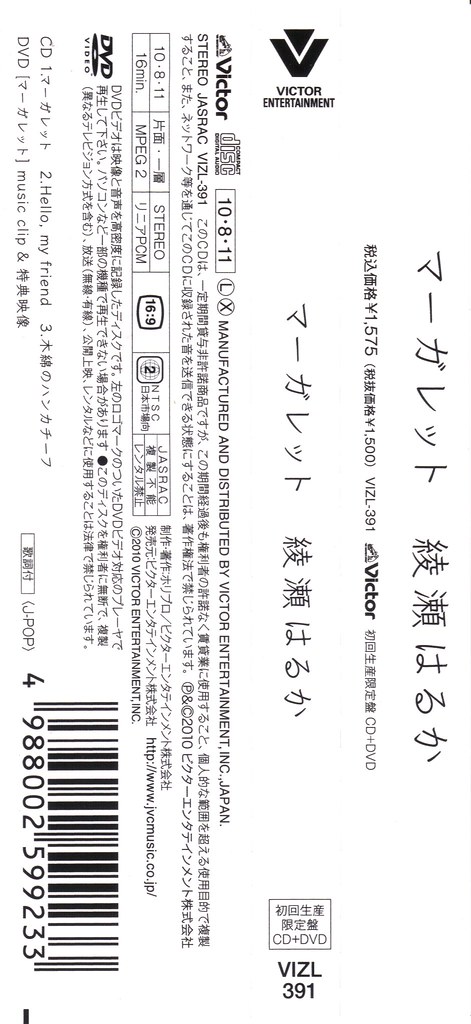 マーガレット 綾瀬はるか
税込価格¥1,575 (税抜価格¥1,500) VIZL-391 Victor 初回生産限定盤 CD+DVD
VICTOR
ENTERTAINMENT
マーガレット 綾瀬はるか
初回生産
限定盤
CD+DVD
VIZL
391
Victor COMPACT disc DIGITAL AUDIO 10・8・11 L X MANUFACTURED AND DISTRIBUTED BY VICTOR ENTERTAINMENT, INC., JAPAN.
STEREO JASRAC VIZL-391 このCDは、一定期間貸与非許諾商品ですが、この期間経過後も権利者の許諾なく賃貸業に使用すること、個人的な範囲を超える使用目的で複製
すること、また、ネットワーク等を通じてこのCDに収録された音を送信できる状態にすることは、著作権法で禁じられています。 Ⓟ&©2010 ビクターエンタテインメント株式会社
10・8・11 片面・一層 STEREO 16:9 2 NTSC 日本市場向 JASRAC 複製不能
16min. MPEG 2 リニアPCM レンタル禁止
制作・著作:ホリプロ/ビクターエンタテインメント株式会社
発売元:ビクターエンタテインメント株式会社 http://www.jvcmusic.co.jp/
©2010 VICTOR ENTERTAINMENT, INC.
DVD VIDEO
DVDビデオは映像と音声を高密度に記録したディスクです。左のロゴマークのついたDVDビデオ対応のプレーヤで
再生して下さい。パソコンなど一部の機種で再生できない場合があります ●このディスクを権利者に無断で、複製
(異なるテレビジョン方式を含む)、放送(無線・有線)、公開上映、レンタルなどに使用することは法律で禁じられています。
CD 1.マーガレット 2.Hello, my friend 3.木綿のハンカチーフ
DVD [マーガレット] music clip & 特典映像
歌詞付 〈J-POP〉
4 988002 599233